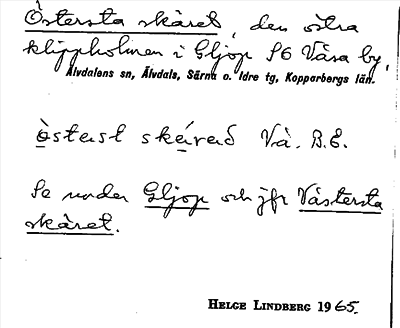 Östersta skäret, den östra
klippholmen i Gljop SO Våsa by,
Älvdalens sn, Älvdals, Särna o. Idre tg, Kopparbergs län.
Vå. B.E.
Se under Gljop och jfr Västersta
skäret.
HELGE LINDBERG 1965.